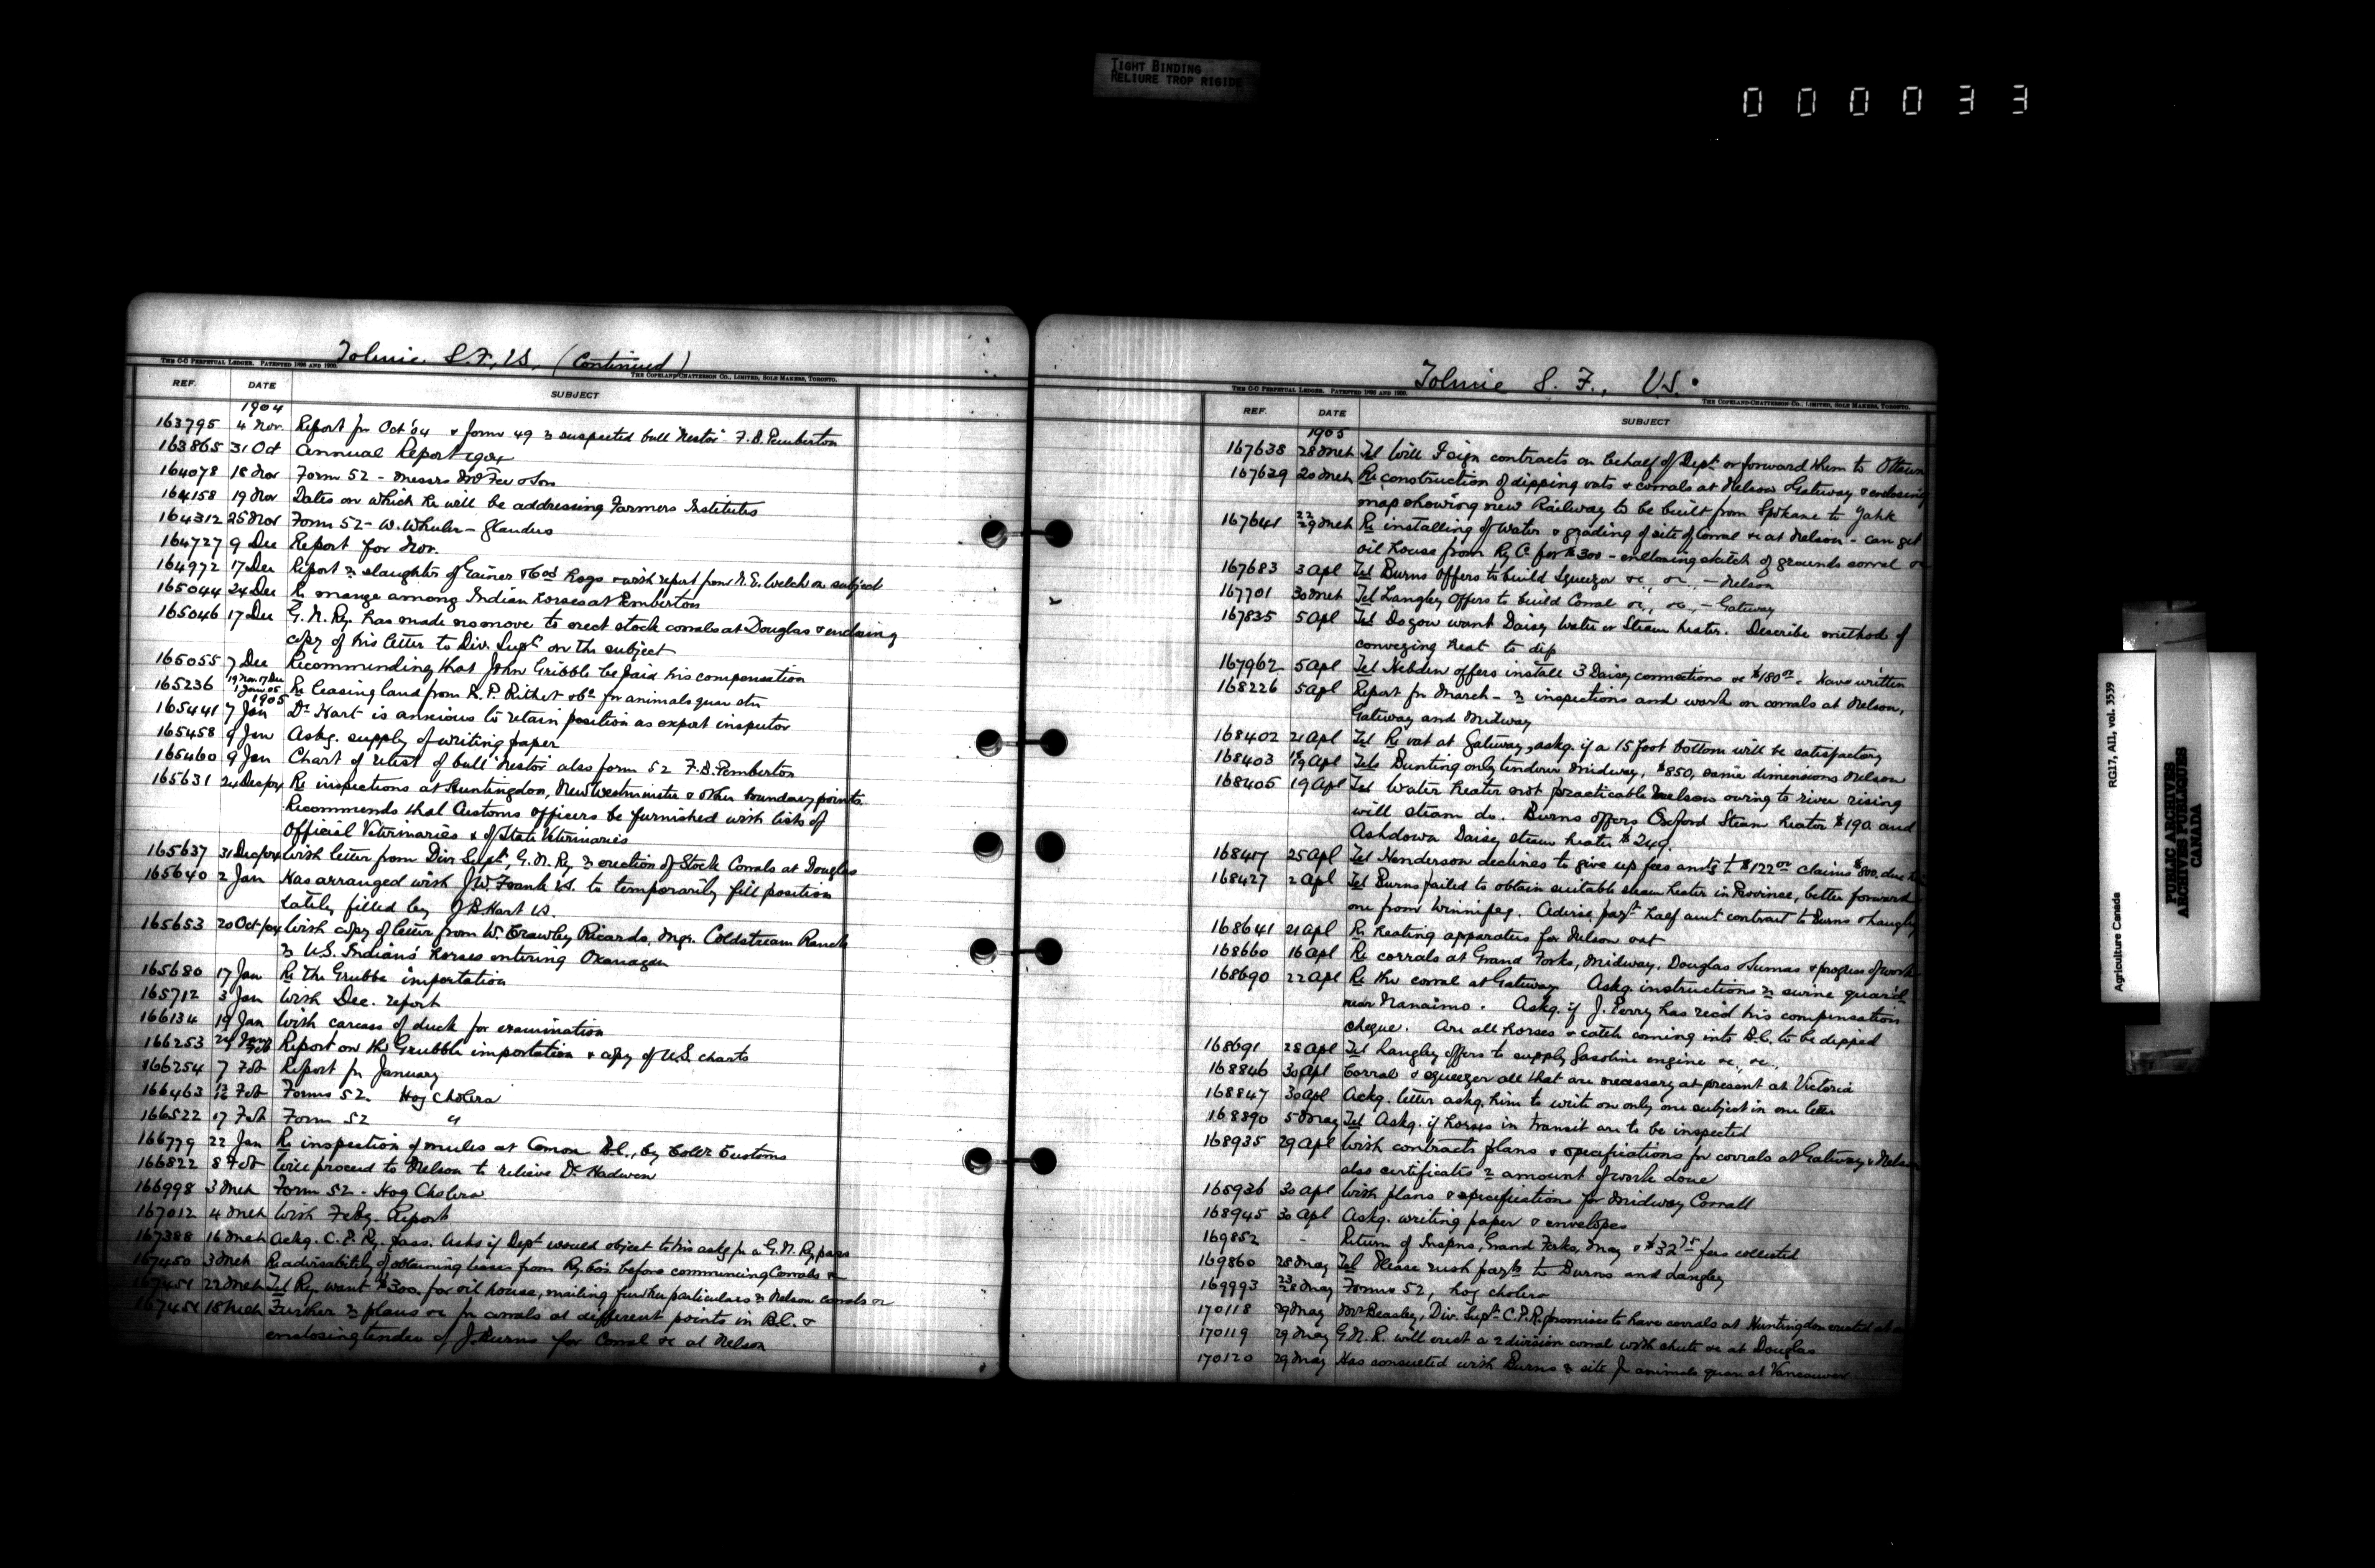 TIGHT BINDING
RELIURE TROP RIGIDE
000033
Tolmie S. F., V.S. (Continued)
THE C-C PERPETUAL LEDGER. PATENTED 1898 AND 1900.
THE COPELAND-CHATTERSON CO., LIMITED, SOLE MAKERS, TORONTO.
REF. DATE SUBJECT
1904
163795 4 Nov. Report for Oct '04 & form 49 re suspected bull "Nestor" F. B. Pemberton
163865 31 Oct Annual Report 1904
164078 18 Nov Form 52 - Messrs McFee & Son
164158 19 Nov Dates on which he will be addressing Farmers Institutes
164312 25 Nov Form 52 - W. Wheeler - Glanders
164727 9 Dec Report for Nov.
164972 17 Dec Report re slaughter of Gainer & Cos hogs & with report from R. E. Welch on subject
165044 24 Dec Re mange among Indian horses at Pemberton
165046 17 Dec G. N. Ry. has made no move to erect stock corrals at Douglas & enclosing
copy of his letter to Div. Supt on the subject
165055 7 Dec Recommending that John Gribble be paid his compensation
165236 19 Nov 17 Dec 1 Jan 05 Re leasing land from R. P. Rithet & Co for animals quar stn
1905
165441 7 Jan Dr Hart is anxious to retain position as export inspector
165458 9 Jan Askg. supply of writing paper
165460 9 Jan Chart of retest of bull "Nestor" also form 52 F. B. Pemberton
165631 24 Dec/04 Re inspections at Huntingdon, New Westminster & other boundary points.
Recommends that Customs officers be furnished with lists of
Official Veterinaries & of State Veterinaries
165637 31 Dec/04 With letter from Div Supt, G. N. Ry re erection of Stock Corrals at Douglas
165640 2 Jan Has arranged with J W. Frank V.S. to temporarily fill position
lately filled by J B Hart V.S.
165653 20 Oct/04 With copy of letter from W. Crawley Ricardo, Mgr. Coldstream Ranch
re U.S. Indians' horses entering Okanagan
165680 17 Jan Re the Grubbe importation
165712 3 Jan With Dec. report
166134 19 Jan With carcass of duck for examination
166253 24 Jany Feb Report on the Grubbe importation & copy of U.S. charts
166254 7 Feb Report for January
166463 13 16 Feb Forms 52. Hog Cholera
166522 17 Feb Form 52 "
166779 22 Jan Re inspection of mules at Comox B.C., by Collr Customs
166822 8 Feb Will proceed to Nelson to relieve Dr Hadwen
166998 3 Mch Form 52 - Hog Cholera
167012 4 Mch With Feby. Report
167388 16 Mch Ackg. C. P. Ry. pass. Asks if Dept would object to his askg for a G. N. Ry pass
167450 3 Mch Re advisability of obtaining leases from Ry. Cos. before commencing Corrals &c
167451 22 Mch Tel Ry. want $300. for oil house, mailing further particulars re Nelson corrals &c
18 Mch Further re plans &c for corrals at different points in B.C. &
enclosing tender of J Burns for Corral &c at Nelson
Tolmie S. F., V.S.
THE C-C PERPETUAL LEDGER. PATENTED 1898 AND 1900.
THE COPELAND-CHATTERSON CO., LIMITED, SOLE MAKERS, TORONTO.
REF. DATE SUBJECT
1905
167638 28 Mch Tel Will I sign contracts on behalf of Dept or forward them to Ottawa
167639 20 Mch Re construction of dipping vats & corrals at Nelson & Gateway & enclosing
map showing new Railway to be built from Spokane to Yahk
167641 22 29 Mch Re installing of water & grading of site of Corral &c at Nelson - can get
oil house from Ry Co for $300 - enclosing sketch of grounds corral &c
167683 3 Apl Tel Burns offers to build Squeezer &c, &c, - Nelson
167701 30 Mch Tel Langley offers to build Corral &c, &c, - Gateway
167835 5 Apl Tel Do you want Daisy Water or Steam heater. Describe method of
conveying heat to dip
167962 5 Apl Tel Hebden offers install 3 Daisy connections &c $180.00. Have written
168226 5 Apl Report for March - re inspections and work on corrals at Nelson,
Gateway and Midway
168402 21 Apl Tel Re vat at Gateway, askg. if a 15 foot bottom will be satisfactory
168403 18 19 Apl Tels Bunting only tenderer Midway, $850, same dimensions Nelson
168405 19 Apl Tel Water heater not practicable Nelson owing to river rising
will steam do. Burns offers Oxford Steam heater $190. and
Ashdown Daisy steam heater $240.
168417 25 Apl Tel Henderson declines to give up fees amtg to $122.00 claims $800. due
168427 2 Apl Tel Burns failed to obtain suitable steam heater in Province, better forward
one from Winnipeg. Advise payt half amt contract to Burns & Langley
168641 21 Apl Re heating apparatus for Nelson vat
168660 16 Apl Re corrals at Grand Forks, Midway, Douglas & Sumas & progress of work
168690 22 Apl Re the corral at Gateway. Askg. instructions re swine quar'd
near Nanaimo. Askg. if J. Perry has rec'd his compensation
cheque. Are all horses & cattle coming into B.C. to be dipped
168691 28 Apl Tel Langley offers to supply gasoline engine &c, &c.,
168846 30 Apl Corral & squeezer all that are necessary at present at Victoria
168847 30 Apl Ackg. letter askg. him to write on only one subject in one letter
168890 5 May Tel Askg. if horses in transit are to be inspected
168935 29 Apl With contracts plans & specifications for corrals at Gateway & Nelson
also certificates re amount of work done
168936 30 Apl With plans & specifications for Midway Corrall
168945 30 Apl Askg. writing paper & envelopes
169852 - Return of Inspns, Grand Forks, May & $32.75 fees collected
169860 28 May Tel Please rush payts to Burns and Langley
169993 23 28 May Forms 52, hog cholera
170118 29 May Mr Beasley, Div. Supt. C.P.R. promises to have corrals at Huntingdon erected at
170119 29 May G.N.R. will erect a 2 division corral with chute &c at Douglas
170120 29 May Has consulted with Burns re site for animals quar at Vancouver
Agriculture Canada RG17, AII, vol. 3539
PUBLIC ARCHIVES
ARCHIVES PUBLIQUES
CANADA